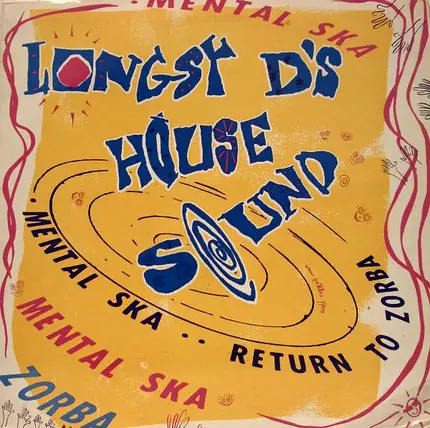 ·MENTAL SKA
LONGSY D'S
HOUSE
SOUND
·MENTAL SKA·· RETURN TO ZORBA
MENTAL SKA
ZORBA